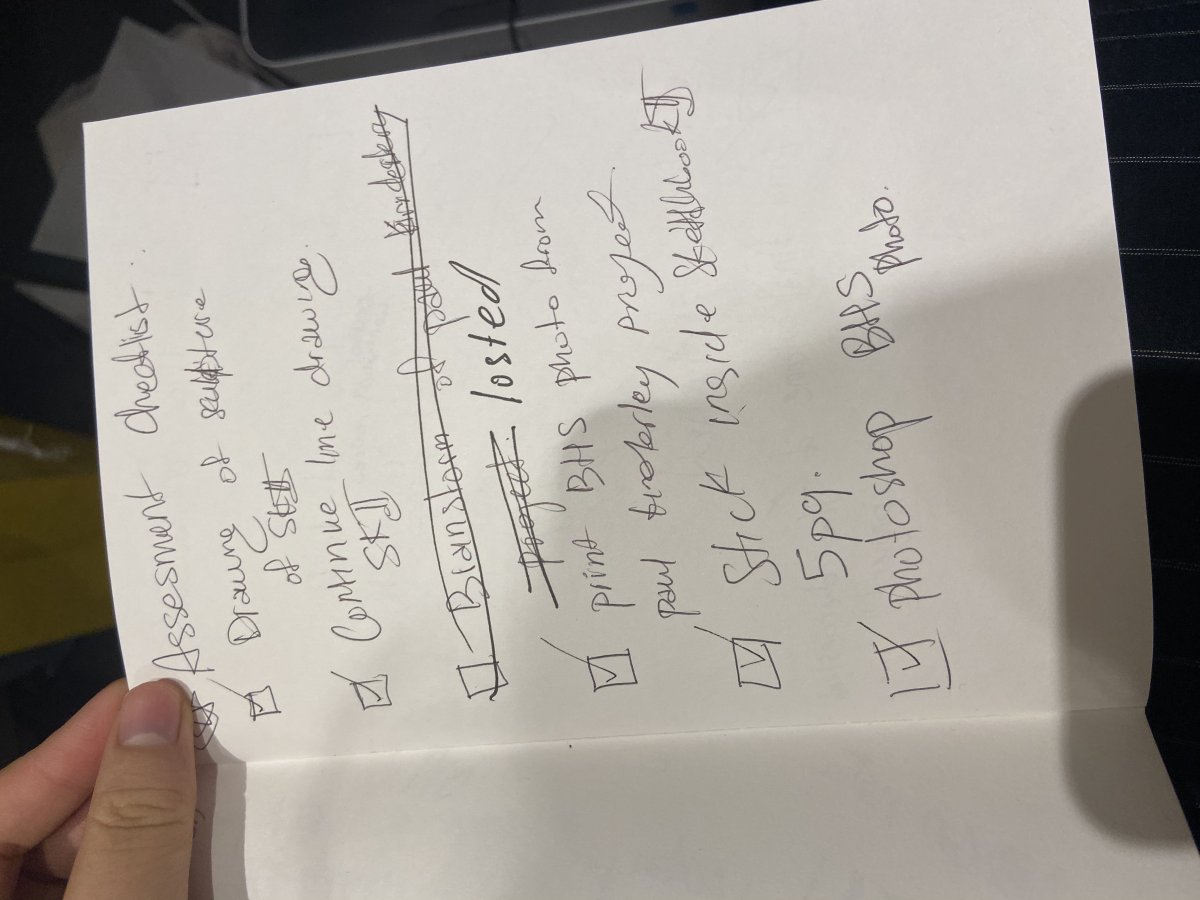 Assesment checklist.
Drawing of sculpture
of SKII
Continue line drawing.
SKII
Bianstorm of paul kinderley
project. losted
print BHS photo from
paul project
Stick inside Sketthbook II
5pg.
photoshop BHS
photo.